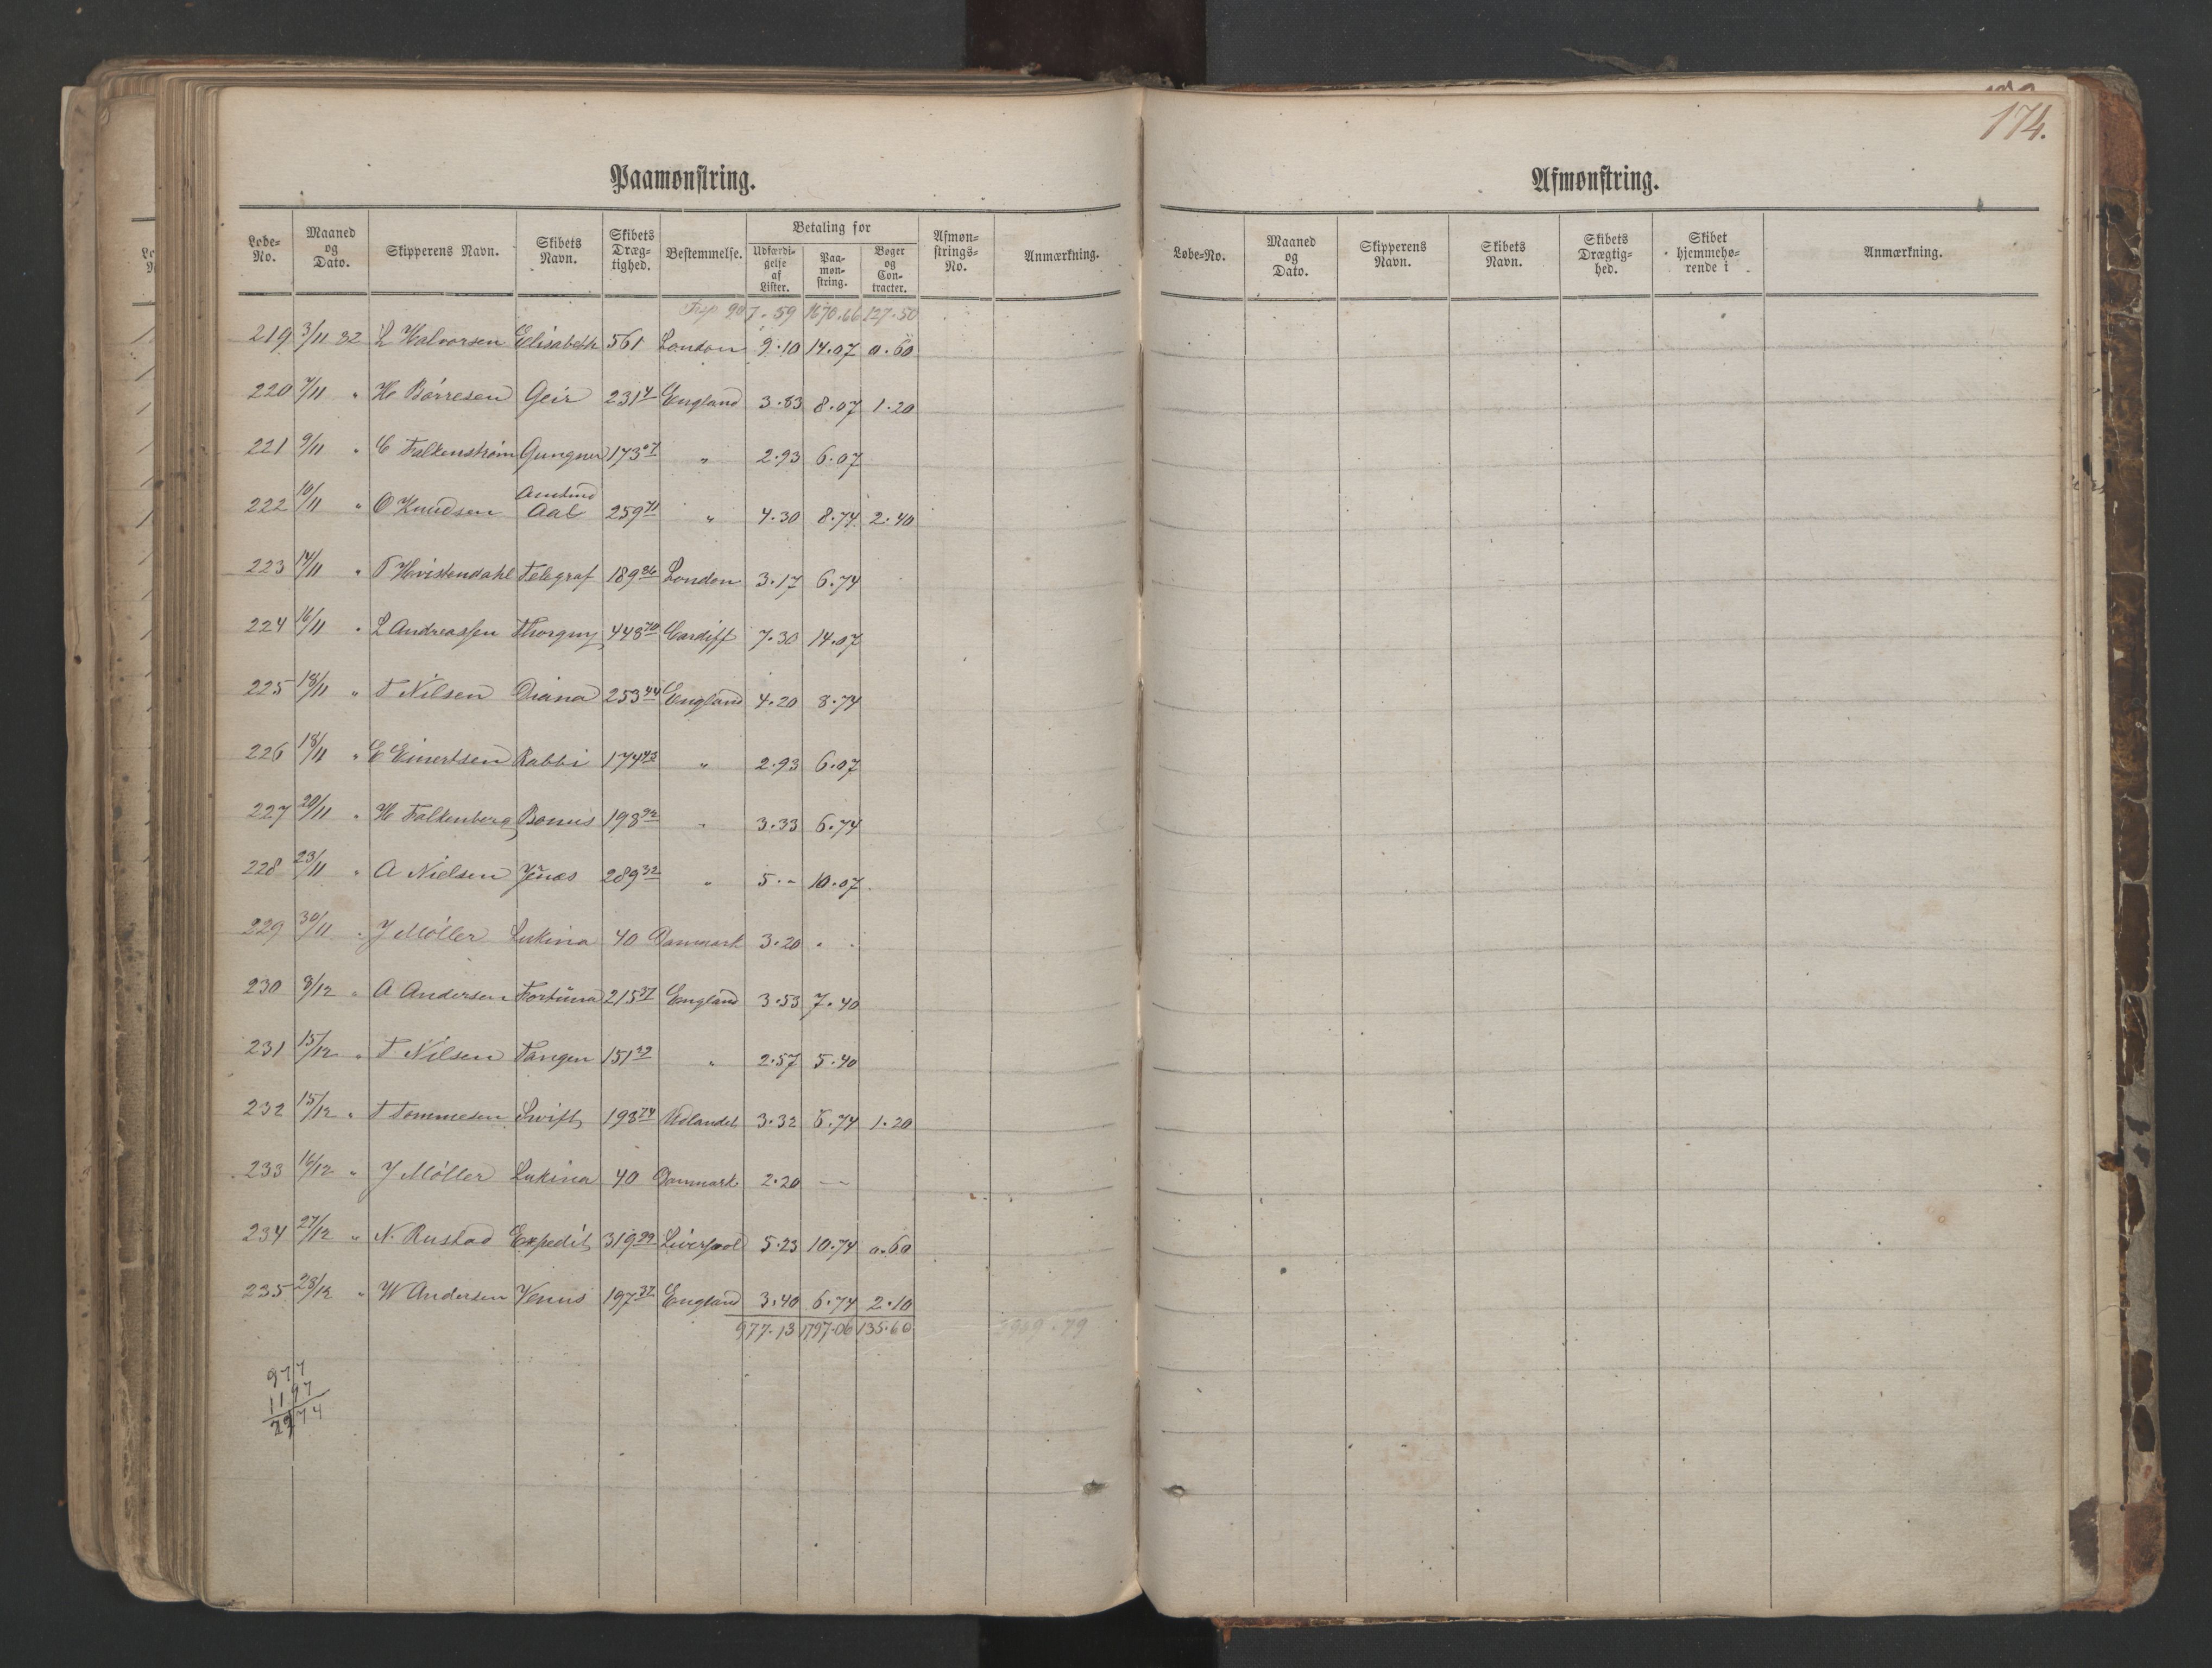 174.
Paamønstring.
Løbe-No. Maaned og Dato. Skipperens Navn. Skibets Navn. Skibets Dræg-tighed. Bestemmelse. Betaling for Udfærdi-gelse af Lister. Paa-møn-string. Bøger og Con-tracter. Afmøn-strings-No. Anmærkning.
907.59 1670.66 127.50
219 3/11 82 L Halvorsen Elisabeth 561 London 9.10 14.07 0.60
220 7/11 " H Børresen Geir 231 4 England 3.83 8.07 1.20
221 9/11 " C Falkenstrøm Gungner 173 07 " 2.93 6.07
222 10/11 " O Knudsen Amtmd Aall 259 71 " 4.30 8.74 2.40
223 14/11 " T Hvistendahl Telegraf 189 86 London 3.17 6.74
224 16/11 " L Andreassen Thorgny 448 70 Cardiff 7.30 14.07
225 18/11 " T Nilsen Diana 253 44 England 4.20 8.74
226 18/11 " E Einertsen Rabbi 174 43 " 2.93 6.07
227 20/11 " H Falkenberg Bonus 198 92 " 3.33 6.74
228 23/11 " A Nielsen 289 32 " 5.- 10.07
229 30/11 " J Møller Lukina 40 Danmark 3.20 " "
230 8/12 " A Andersen Fortuna 215 37 England 3.53 7.40
231 15/12 " T Nilsen Tangen 151 32 " 2.57 5.40
232 15/12 " T Tommesen Swift 198 74 Udlandet 3.32 6.74 1.20
233 16/12 " J Møller Lukina 40 Danmark 2.20 —
234 27/12 " N. Rustad Expedit 319 29 Liverpool 5.23 10.74 0.60
235 28/12 " W Andersen Venus 197 32 England 3.40 6.74 2.10
977.13 1797.06 135.60
977
1197
Afmønstring.
Løbe-No. Maaned og Dato. Skipperens Navn. Skibets Navn. Skibets Drægtig-hed. Skibet hjemmehø-rende i Anmærkning.